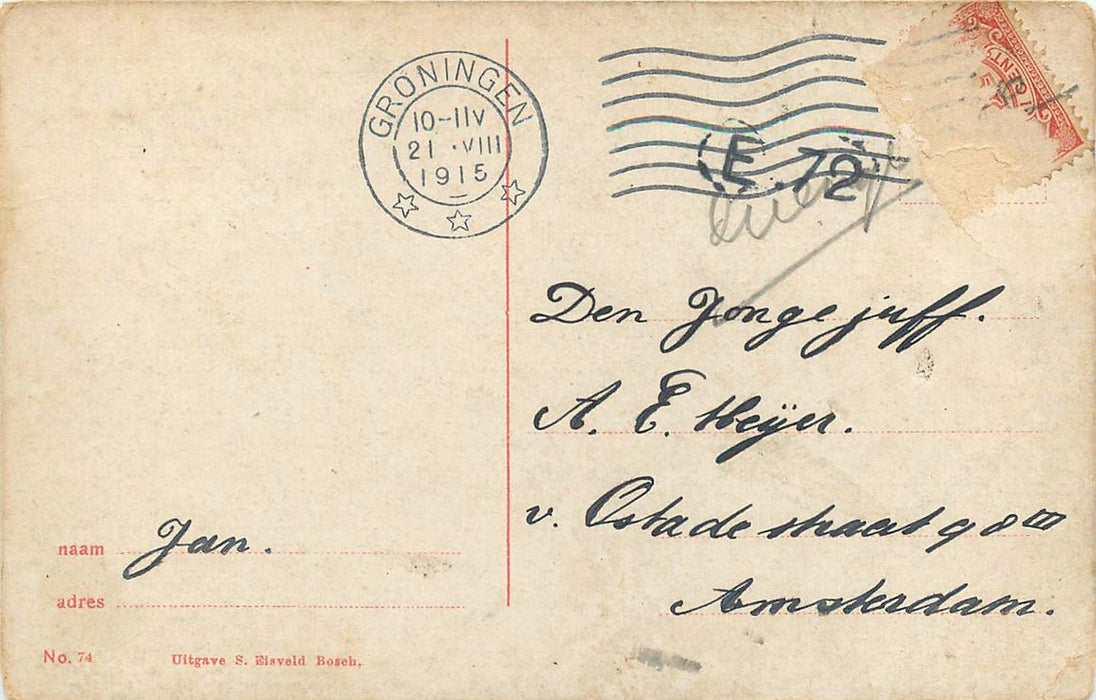 GRONINGEN
10-11V
21 · VIII
1915
E .72
CENT
Den Jonge juff.
A. E. Heÿer.
v. Ostade straat 98 III
Amsterdam.
naam Jan.
adres
No. 74 Uitgave S. Eisveld Bosch.